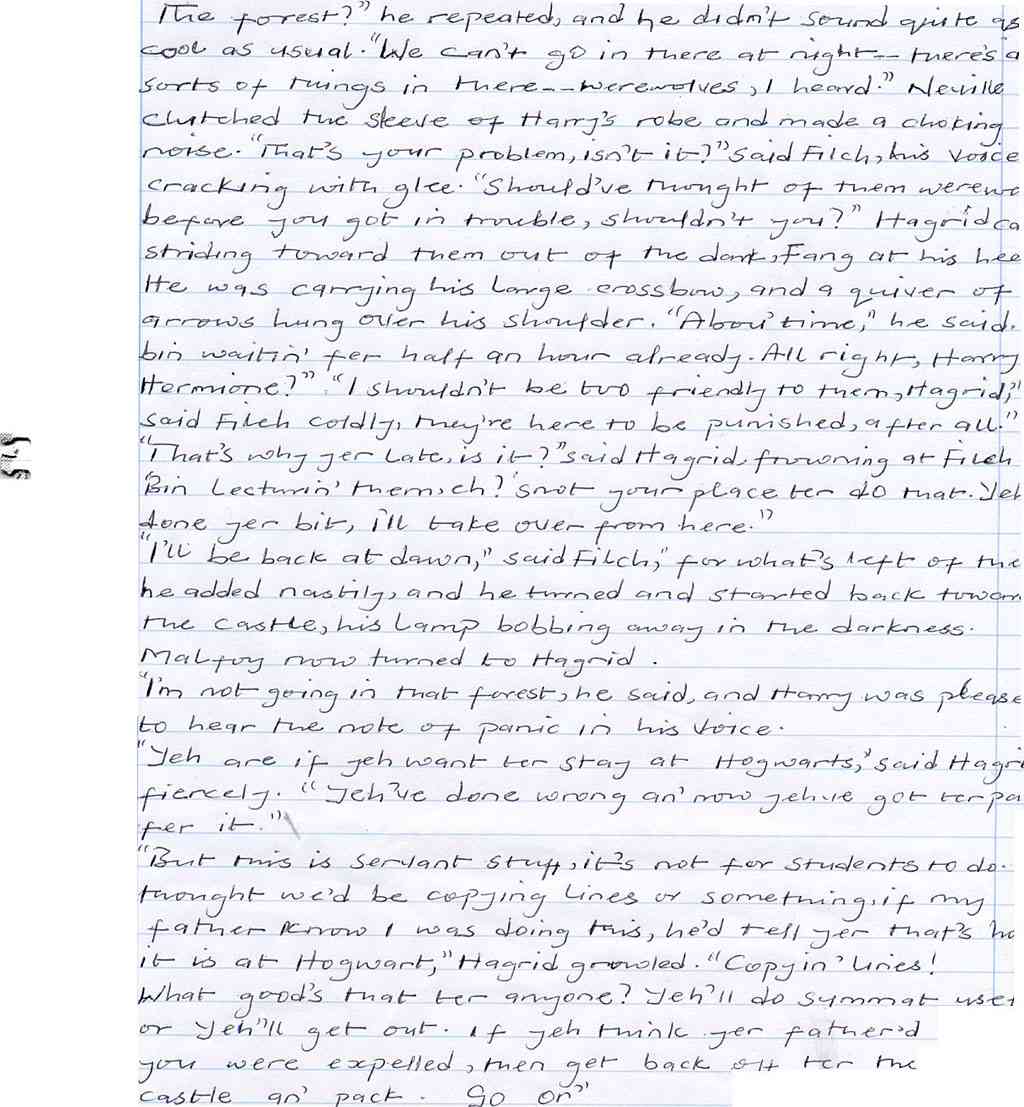 The forest?" he repeated, and he didn't sound quite as
cool as usual. "We can't go in there at night -- there's a
sorts of things in there -- werewolves, I heard." Neville
clutched the sleeve of Harry's robe and made a choking
noise. "That's your problem, isn't it?" said Filch, his voice
cracking with glee. "Should've thought of them werewo
before you got in trouble, shouldn't you?" Hagrid ca
striding toward them out of the dark, Fang at his hee
He was carrying his large crossbow, and a quiver of
arrows hung over his shoulder. "Abou' time," he said.
bin waitin' fer half an hour already. All right, Harry
Hermione?" "I shouldn't be too friendly to them, Hagrid,"
said Filch coldly, they're here to be punished, after all."
"That's why yer late, is it?" said Hagrid, frowning at Filch
'Bin Lecturin' them, eh? 'snot your place ter do that. Yeh
done yer bit, i'll take over from here."
"I'll be back at dawn," said Filch, "for what's left of the
he added nastily, and he turned and started back towar
the castle, his lamp bobbing away in the darkness.
Malfoy now turned to Hagrid.
"I'm not going in that forest, he said, and Harry was please
to hear the note of panic in his voice.
"Yeh are if yeh want ter stay at Hogwarts," said Hagri
fiercely. "Yeh've done wrong an' now yehve got ter pa
fer it."
"But this is servant stuff, it's not for students to do.
thought we'd be copying lines or something, if my
father know I was doing this, he'd tell yer that's ho
it is at Hogwart," Hagrid growled. "Copyin' lines!
What good's that ter anyone? Yeh'll do summat use
or Yeh'll get out. if yeh think yer father'd
you were expelled, then get back off ter the
castle an' pack. Go on"